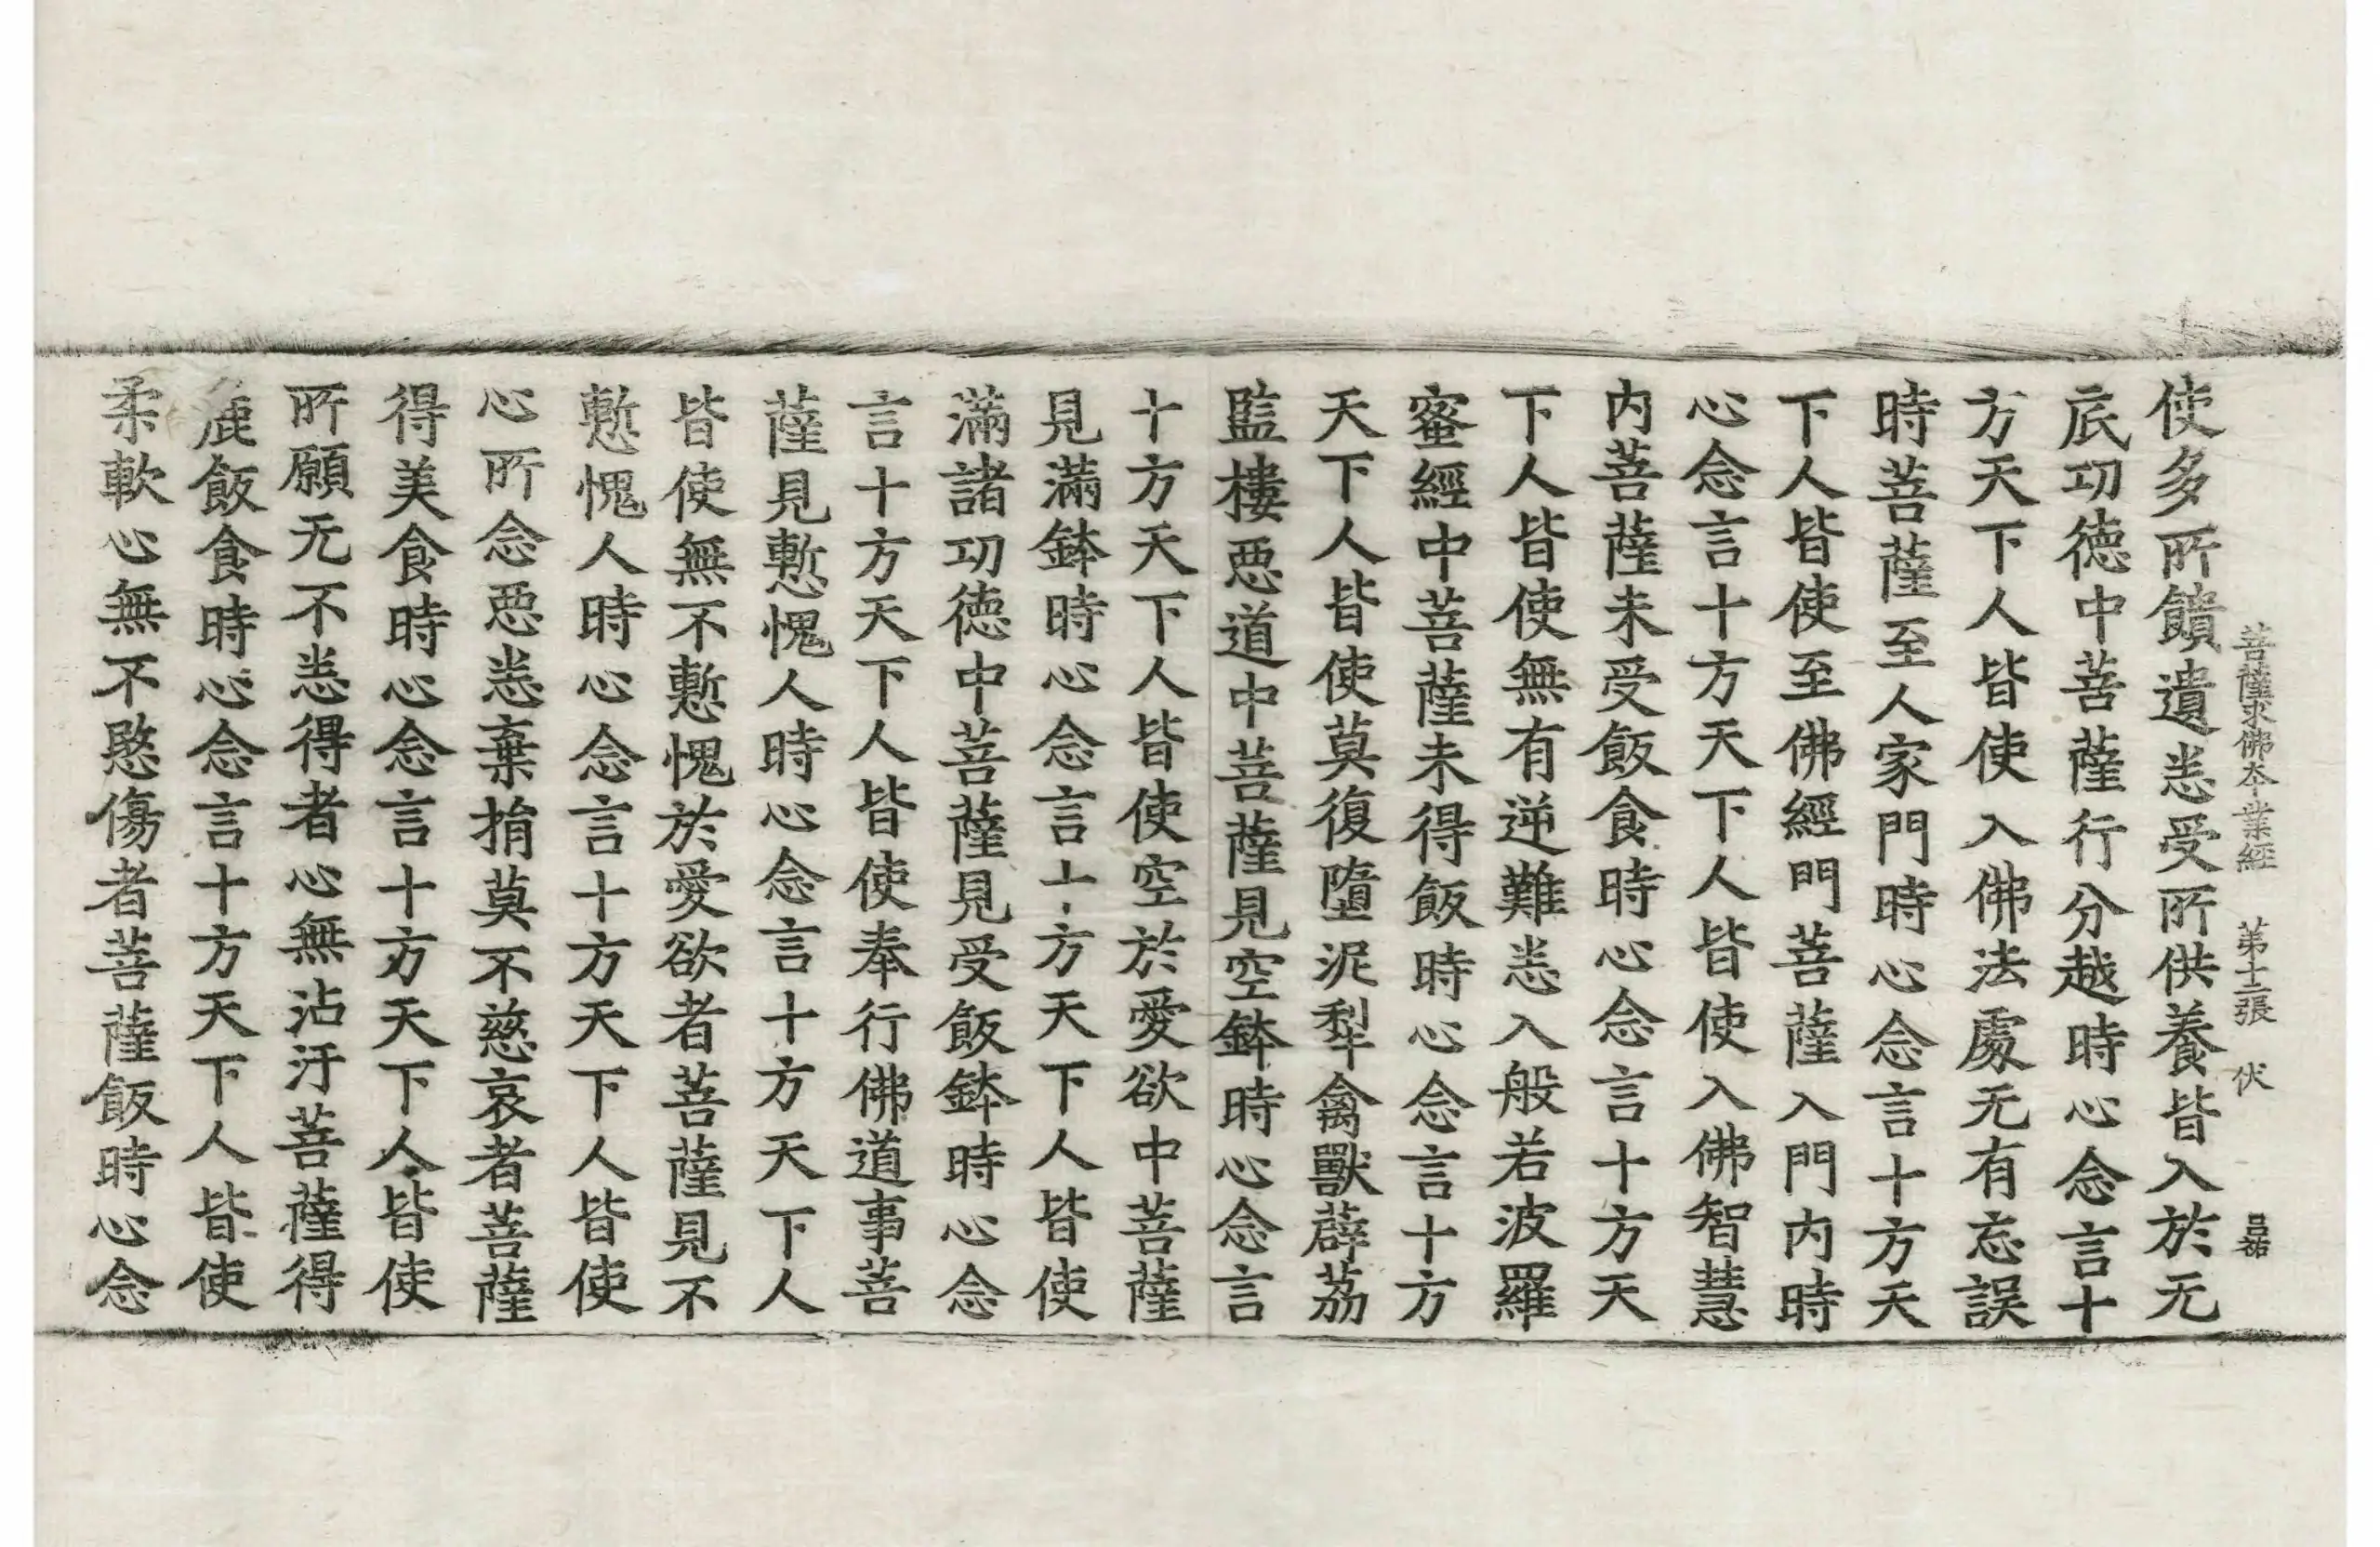 菩薩求佛本業經 第十二張 伏 呂祐
使多所饋遺悉受所供養皆入於无
底功德中菩薩行分越時心念言十
方天下人皆使入佛法處无有忘誤
時菩薩至人家門時心念言十方天
下人皆使至佛經門菩薩入門內時
心念言十方天下人皆使入佛智慧
內菩薩未受飯食時心念言十方天
下人皆使無有逆難悉入般若波羅
蜜經中菩薩未得飯時心念言十方
天下人皆使莫復墮泥犁禽獸薜荔
監樓惡道中菩薩見空鉢時心念言
十方天下人皆使空於愛欲中菩薩
見滿鉢時心念言十方天下人皆使
滿諸功德中菩薩見受飯鉢時心念
言十方天下人皆使奉行佛道事菩
薩見慙愧人時心念言十方天下人
皆使無不慙愧於愛欲者菩薩見不
慙愧人時心念言十方天下人皆使
心所念惡悉棄捐莫不慈哀者菩薩
得美食時心念言十方天下人皆使
所願无不悉得者心無沾汙菩薩得
麁飯食時心念言十方天下人皆使
柔軟心無不愍傷者菩薩飯時心念